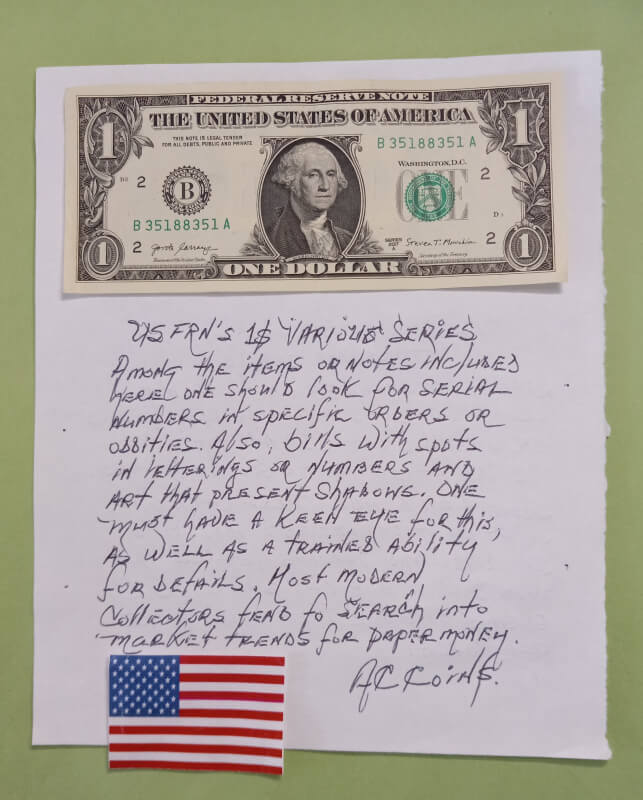 FEDERAL RESERVE NOTE
THE UNITED STATES OF AMERICA
THIS NOTE IS LEGAL TENDER
FOR ALL DEBTS, PUBLIC AND PRIVATE
B 35188351 A
WASHINGTON, D.C.
1
1
2
B
ONE
2
B 35188351 A
2
SERIES
2017
A
Steven T. Mnuchin
2
Secretary of the Treasury
1
1
ONE DOLLAR
US FRN'S 1$ VARIOUS SERIES
AMONG the items OR NOTES INCLUDED
HERE ONE SHOULD look FOR SERIAL
NUMBERS IN SPECIFIC ORDERS OR
ODDITIES. Also, bills with spots
IN letterings OR NUMBERS AND
ART that PRESENT SHADOWS. ONE
must HAVE A KEEN EYE for this,
AS WELL AS A TRAINED Ability
FOR DETAILS. Most MODERN
Collectors TEND to SEARCH into
MARKET TRENDS FOR PAPER MONEY.
AC COINS.